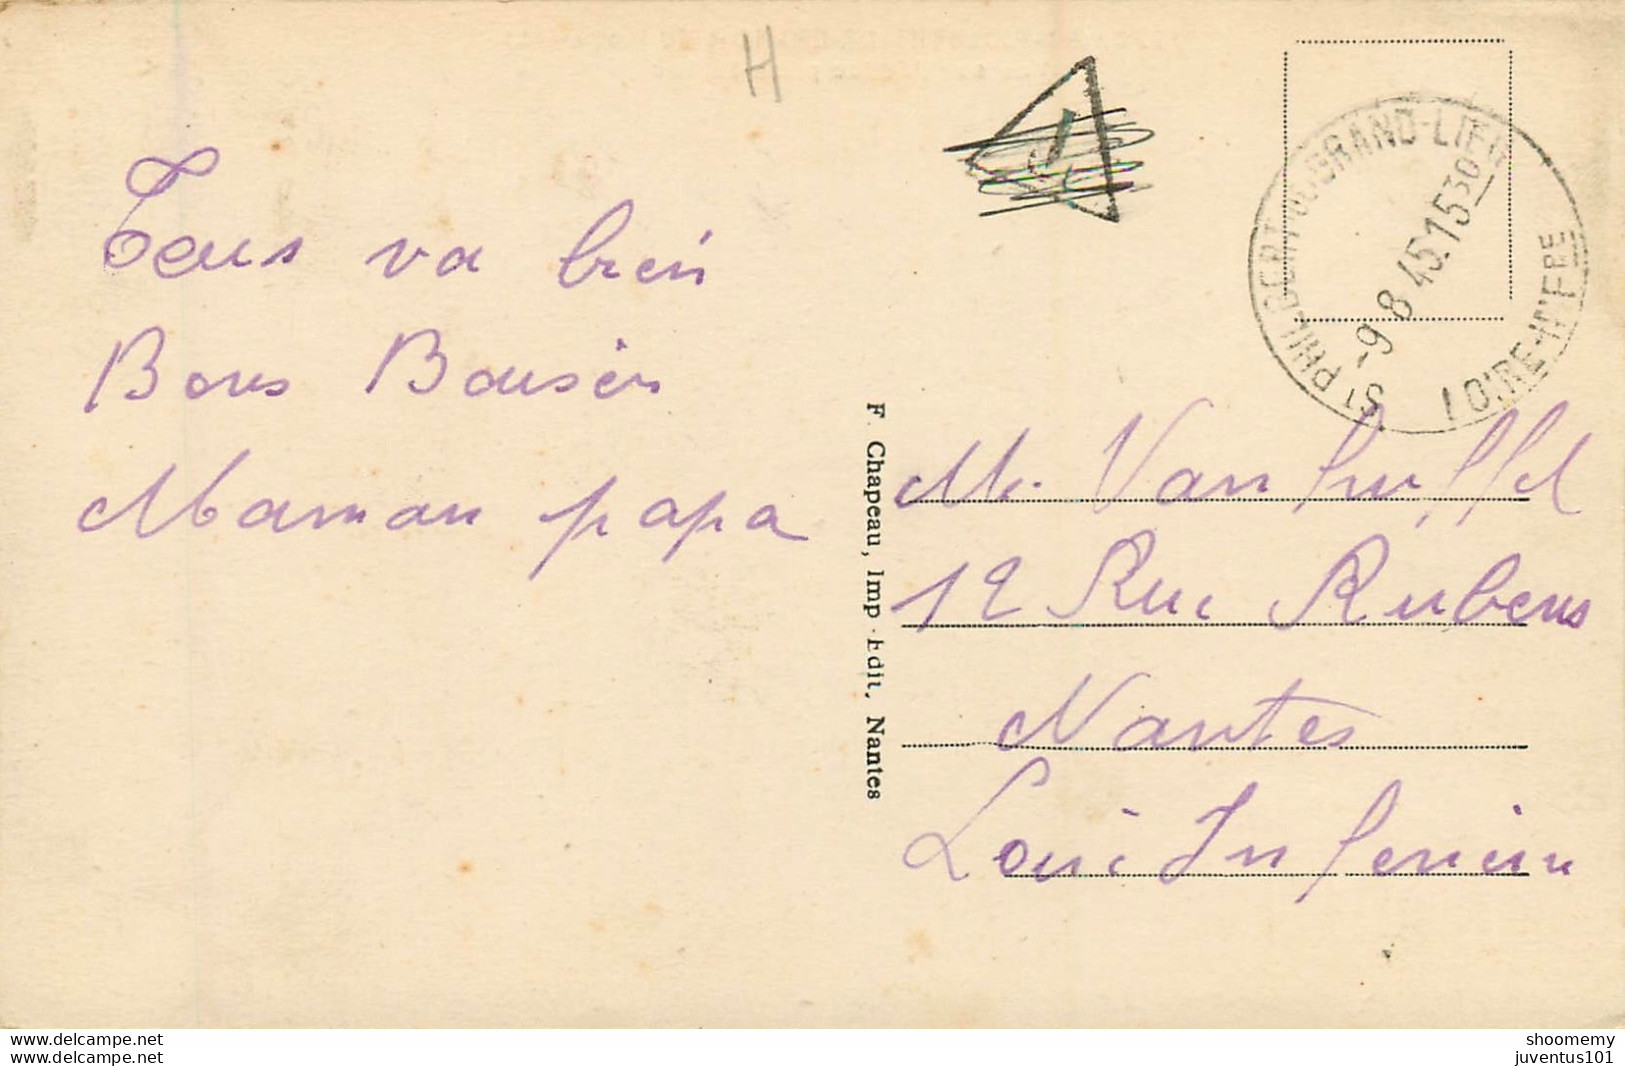 H
ST PHILBERT DE GRAND-LIEU
-9 8 45.15 30
LOIRE-INFRE
Tous va bien
Bons Baisers
Maman papa
F. Chapeau, Imp.-Edit, Nantes
Mr. Vanhuffel
12 Rue Rubens
Nantes
Loire Inferieure
delcampe.net
shoomemy
juventus101